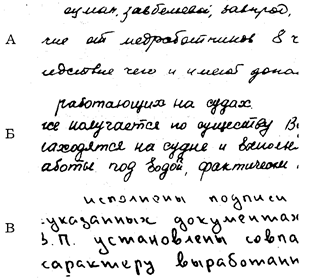 оцман, завбельевой, завпрод,
А чие от медработников 8 ч
едствие чего и имеют допол
работающих на судах
Б же получается по существу В
находятся на судне и выполне
аботы под водой, фактически
исполнены подписи
В указанных документах
З.П. установлены совпа
характеру выработанн